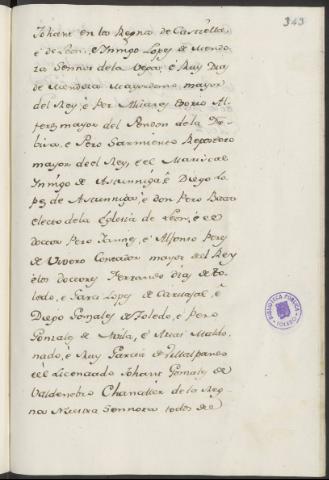 343
Johani en los Regno de Castiella,
é de Leon, e Innigo Lopez de Mendo
za Sennor de la Vega, é Ruy Diaz
de Mendoza Mayordomo mayor
del Rey, é Per Alvarez Osorio Al-
ferez mayor del Pendon de la De-
bisa, e Pero Sarmiento Repostero
mayor del Rey, e el Mariscal
Innigo de Astunniga, é Diego Lo
pez de Astunniga, é don Pero Baca
electo de la Eglesia de Leon, é el
doctor Pero Yannez, é Alfonso Perez
de Vivero Contador mayor del Rey
é los doctores Fernando Diaz de To-
ledo, e Garci Lopez de Carvajal, é
Diego Gonzalez de Toledo, é Pero
Gonzalez de Avila, é Arias Maldo-
nado, é Ruy Garcia de Villalpando
é el Licenciado Johani Gonzalez de
Valdenebro Chanciller de la Rey-
na Nuestra Sennora todos de
BIBLIOTECA PUBLICA
TOLEDO